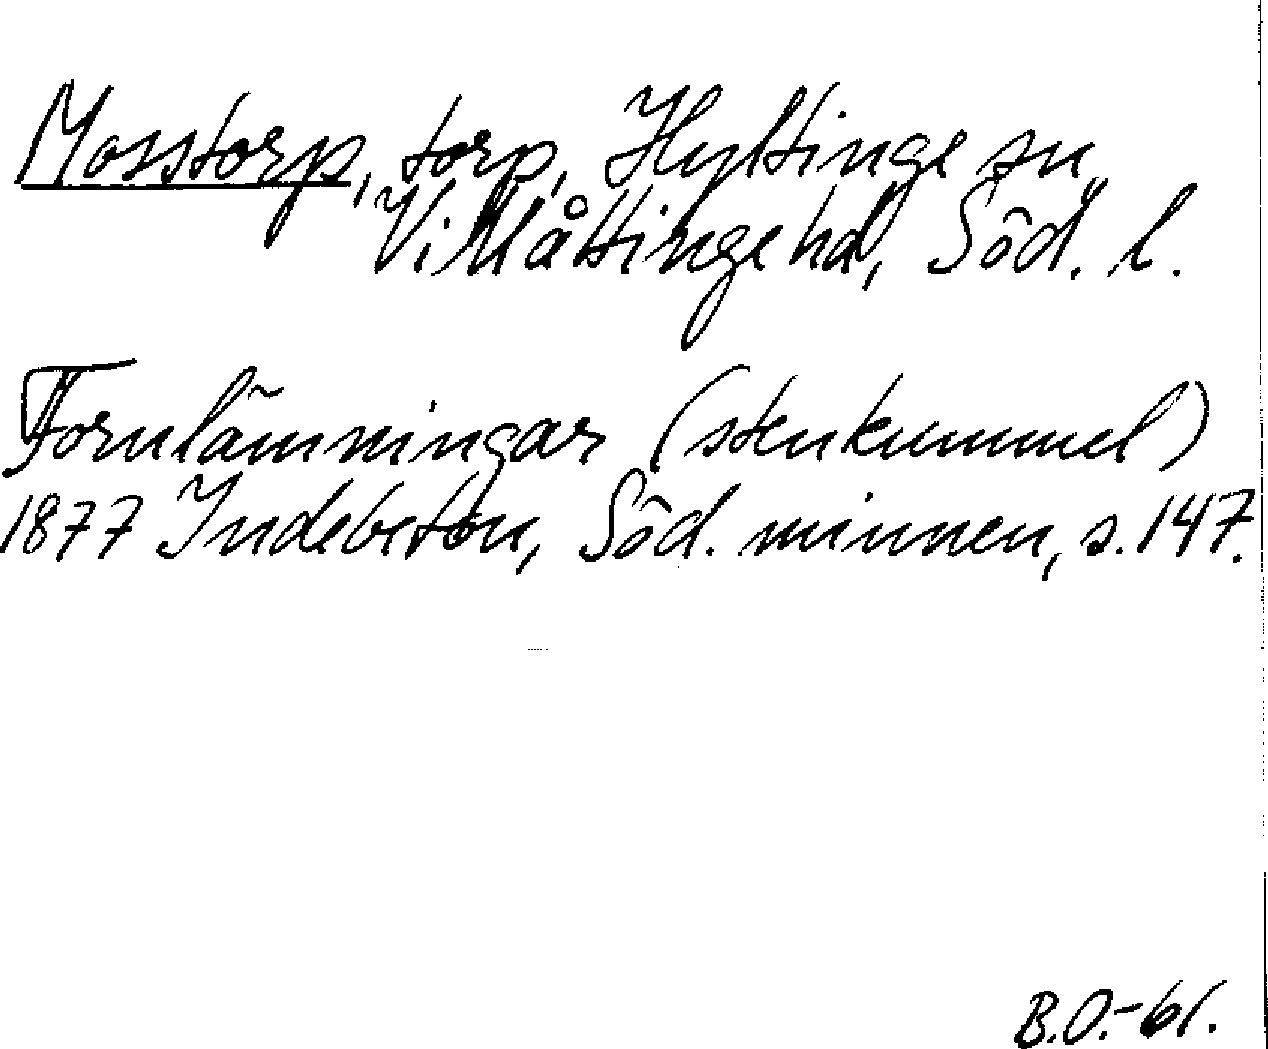 Mosstorp, torp, Hyltinge sn,
Villåttinge hd, Söd. l.
Fornlämningar (stenkummel)
1877 Indebetou, Söd. minnen, s. 147.
B.O.-61.